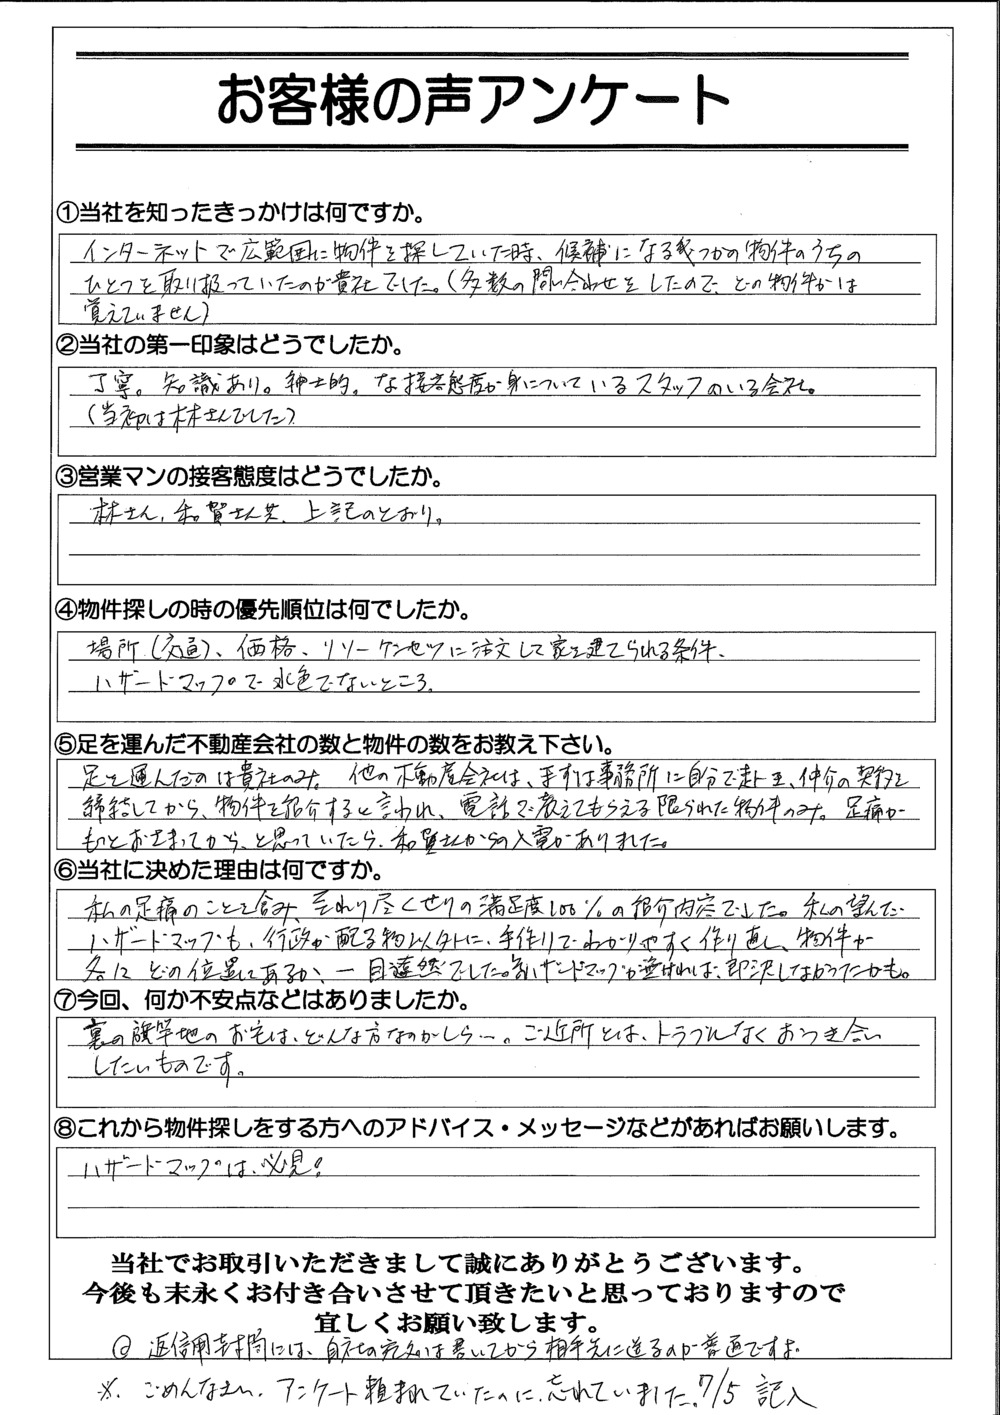 お客様の声アンケート
①当社を知ったきっかけは何ですか。
インターネットで広範囲に物件を探していた時、候補になる幾つかの物件のうちの
ひとつを取り扱っていたのが貴社でした。(多数の問い合わせをしたので、どの物件かは
覚えていません)
②当社の第一印象はどうでしたか。
丁寧。知識あり。紳士的。な接客態度が身についているスタッフのいる会社。
(当初は林さんでした)
③営業マンの接客態度はどうでしたか。
林さん、和賀さん共、上記のとおり。
④物件探しの時の優先順位は何でしたか。
場所(交通)、価格、リソーケンセツに注文して家を建てられる条件、
ハザードマップで水色でないところ。
⑤足を運んだ不動産会社の数と物件の数をお教え下さい。
足を運んだのは貴社のみ。他の不動産会社は、まずは事務所に自分で赴き、仲介の契約を
締結してから、物件を紹介すると言われ、電話で教えてもらえる限られた物件のみ。足痛が
もっとおさまってから、と思っていたら、和賀さんからの入電がありました。
⑥当社に決めた理由は何ですか。
私の足痛のことを含み、至れり尽くせりの満足度100%の紹介内容でした。私の望んだ
ハザードマップも、行政が配る物以外に、手作りでわかりやすく作り直し、物件が
各々どの位置にあるか、一目瞭然でした。ハザードマップが無ければ、即決しなかったかも。
⑦今回、何か不安点などはありましたか。
裏の旗竿地のお宅は、どんな方なのかしら…。ご近所とは、トラブルなくおつき合い
したいものです。
⑧これから物件探しをする方へのアドバイス・メッセージなどがあればお願いします。
ハザードマップは、必見!
当社でお取引いただきまして誠にありがとうございます。
今後も末永くお付き合いさせて頂きたいと思っておりますので
宜しくお願い致します。
◎ 返信用封筒には、自社の宛名は書いてから相手先に送るのが普通ですよ
※、ごめんなさい、アンケート頼まれていたのに、忘れていました。7/5 記入